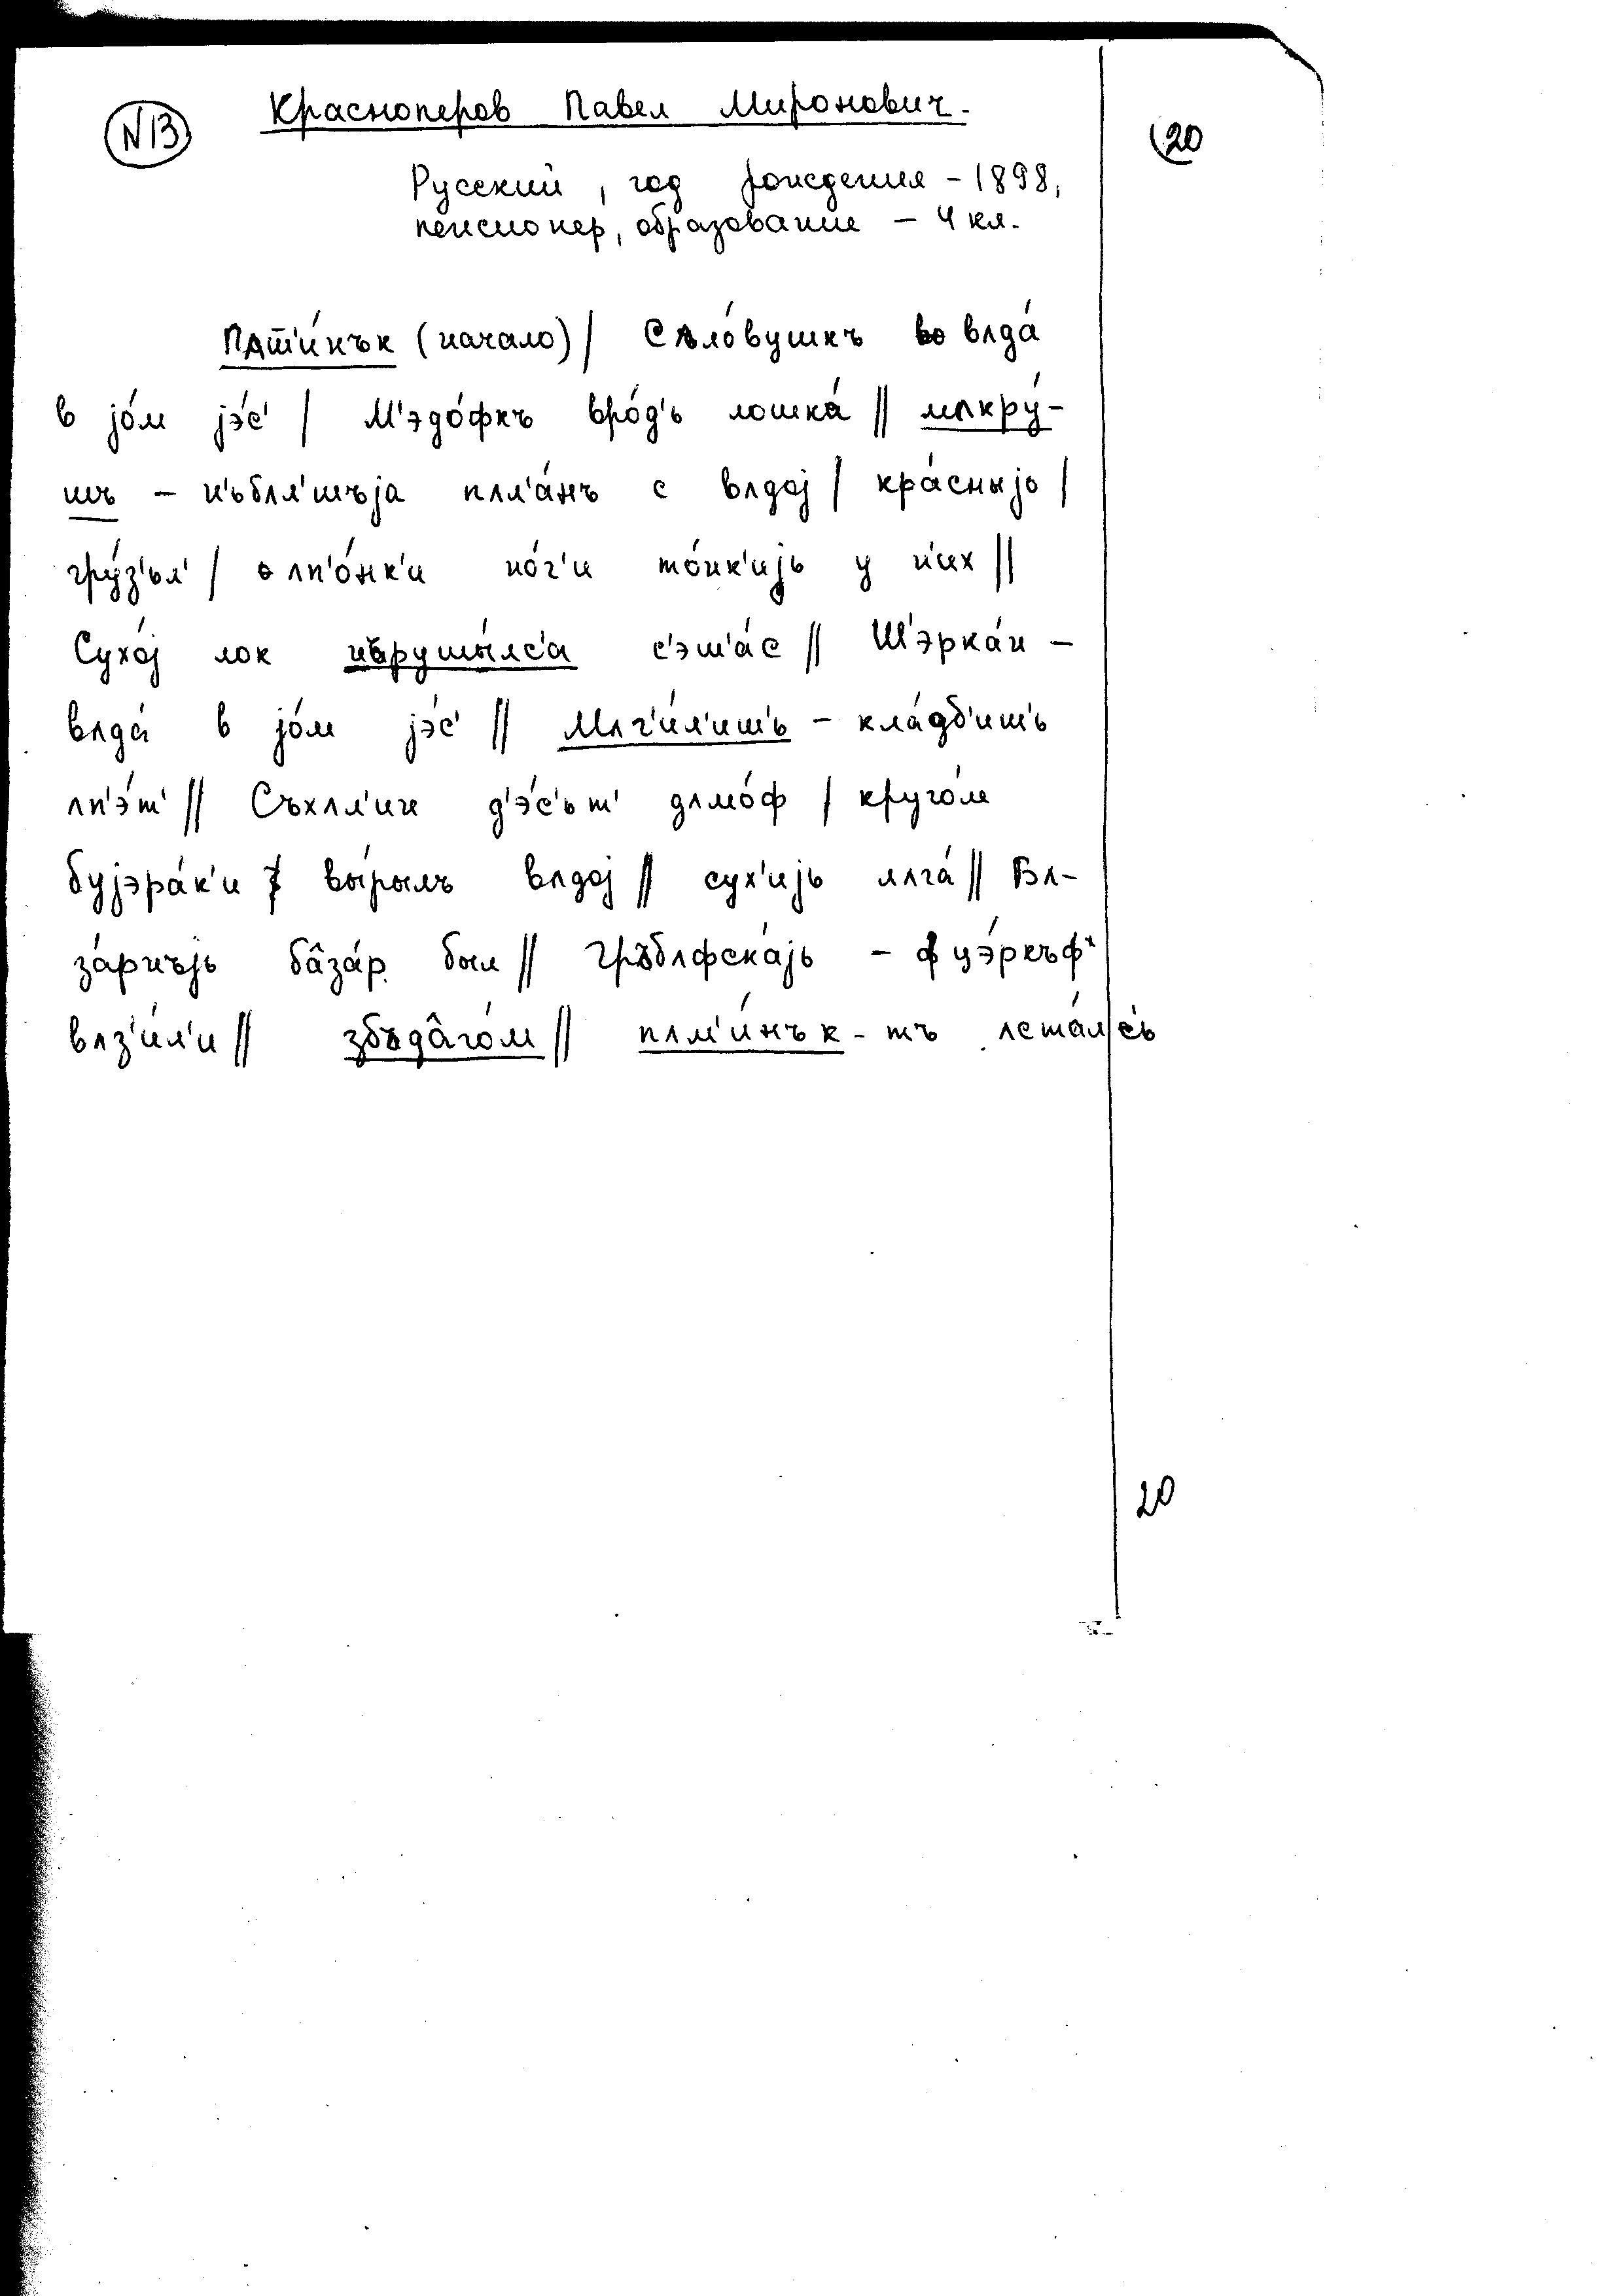 N 13 Красноперов Павел Миронович.
20
Русский, год рождения – 1898,
пенсионер, образование – 4 кл.
Пʌт'и́нък (начало) / Сʌло́вушкъ вʌда́
в jо́м jэ́с' / М'эдо́фкъ вро́д'ь лошка́ // мʌкру́-
шъ – н'ьбʌл'шъjа пʌл'а́нъ с вʌдоj / кра́сныjь /
гру́з'ьл' / ʌп'о́нк'и но́г'и то́нк'иjь у н'их //
Сухо́j лок нърушы́лс'а с'эш'а́с // Ш'эрка́н –
вʌда́ в jо́м jэ́с' // Мʌг'и́л'иш'ь – кла́дб'иш'ь
ʌп'э́т' // Съхлʌ'ин д'э́с'ьт' дʌмо́ф / круго́м
буjэра́к'и вы́рылъ вʌдоj // сух'иjь лʌга́ // Бʌ-
за́рнъjь ба̂за́р был // Гръбʌфска́jь – ф цэ́ркъф'
вʌз'и́л'и // збъда̂го́м // пʌм'и́нък-тъ ʌста́лс'ь
20